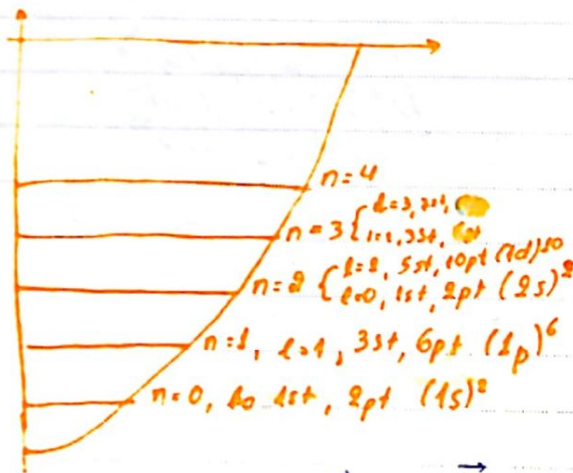 n=4
n=3 { l=3, 7st,
l=1, 3st, 6pt
n=2 { l=2, 5st, 10pt (1d)^10
l=0, 1st, 2pt (2s)^2
n=1, l=1, 3st, 6pt (1p)^6
n=0, l=0 1st, 2pt (1s)^2